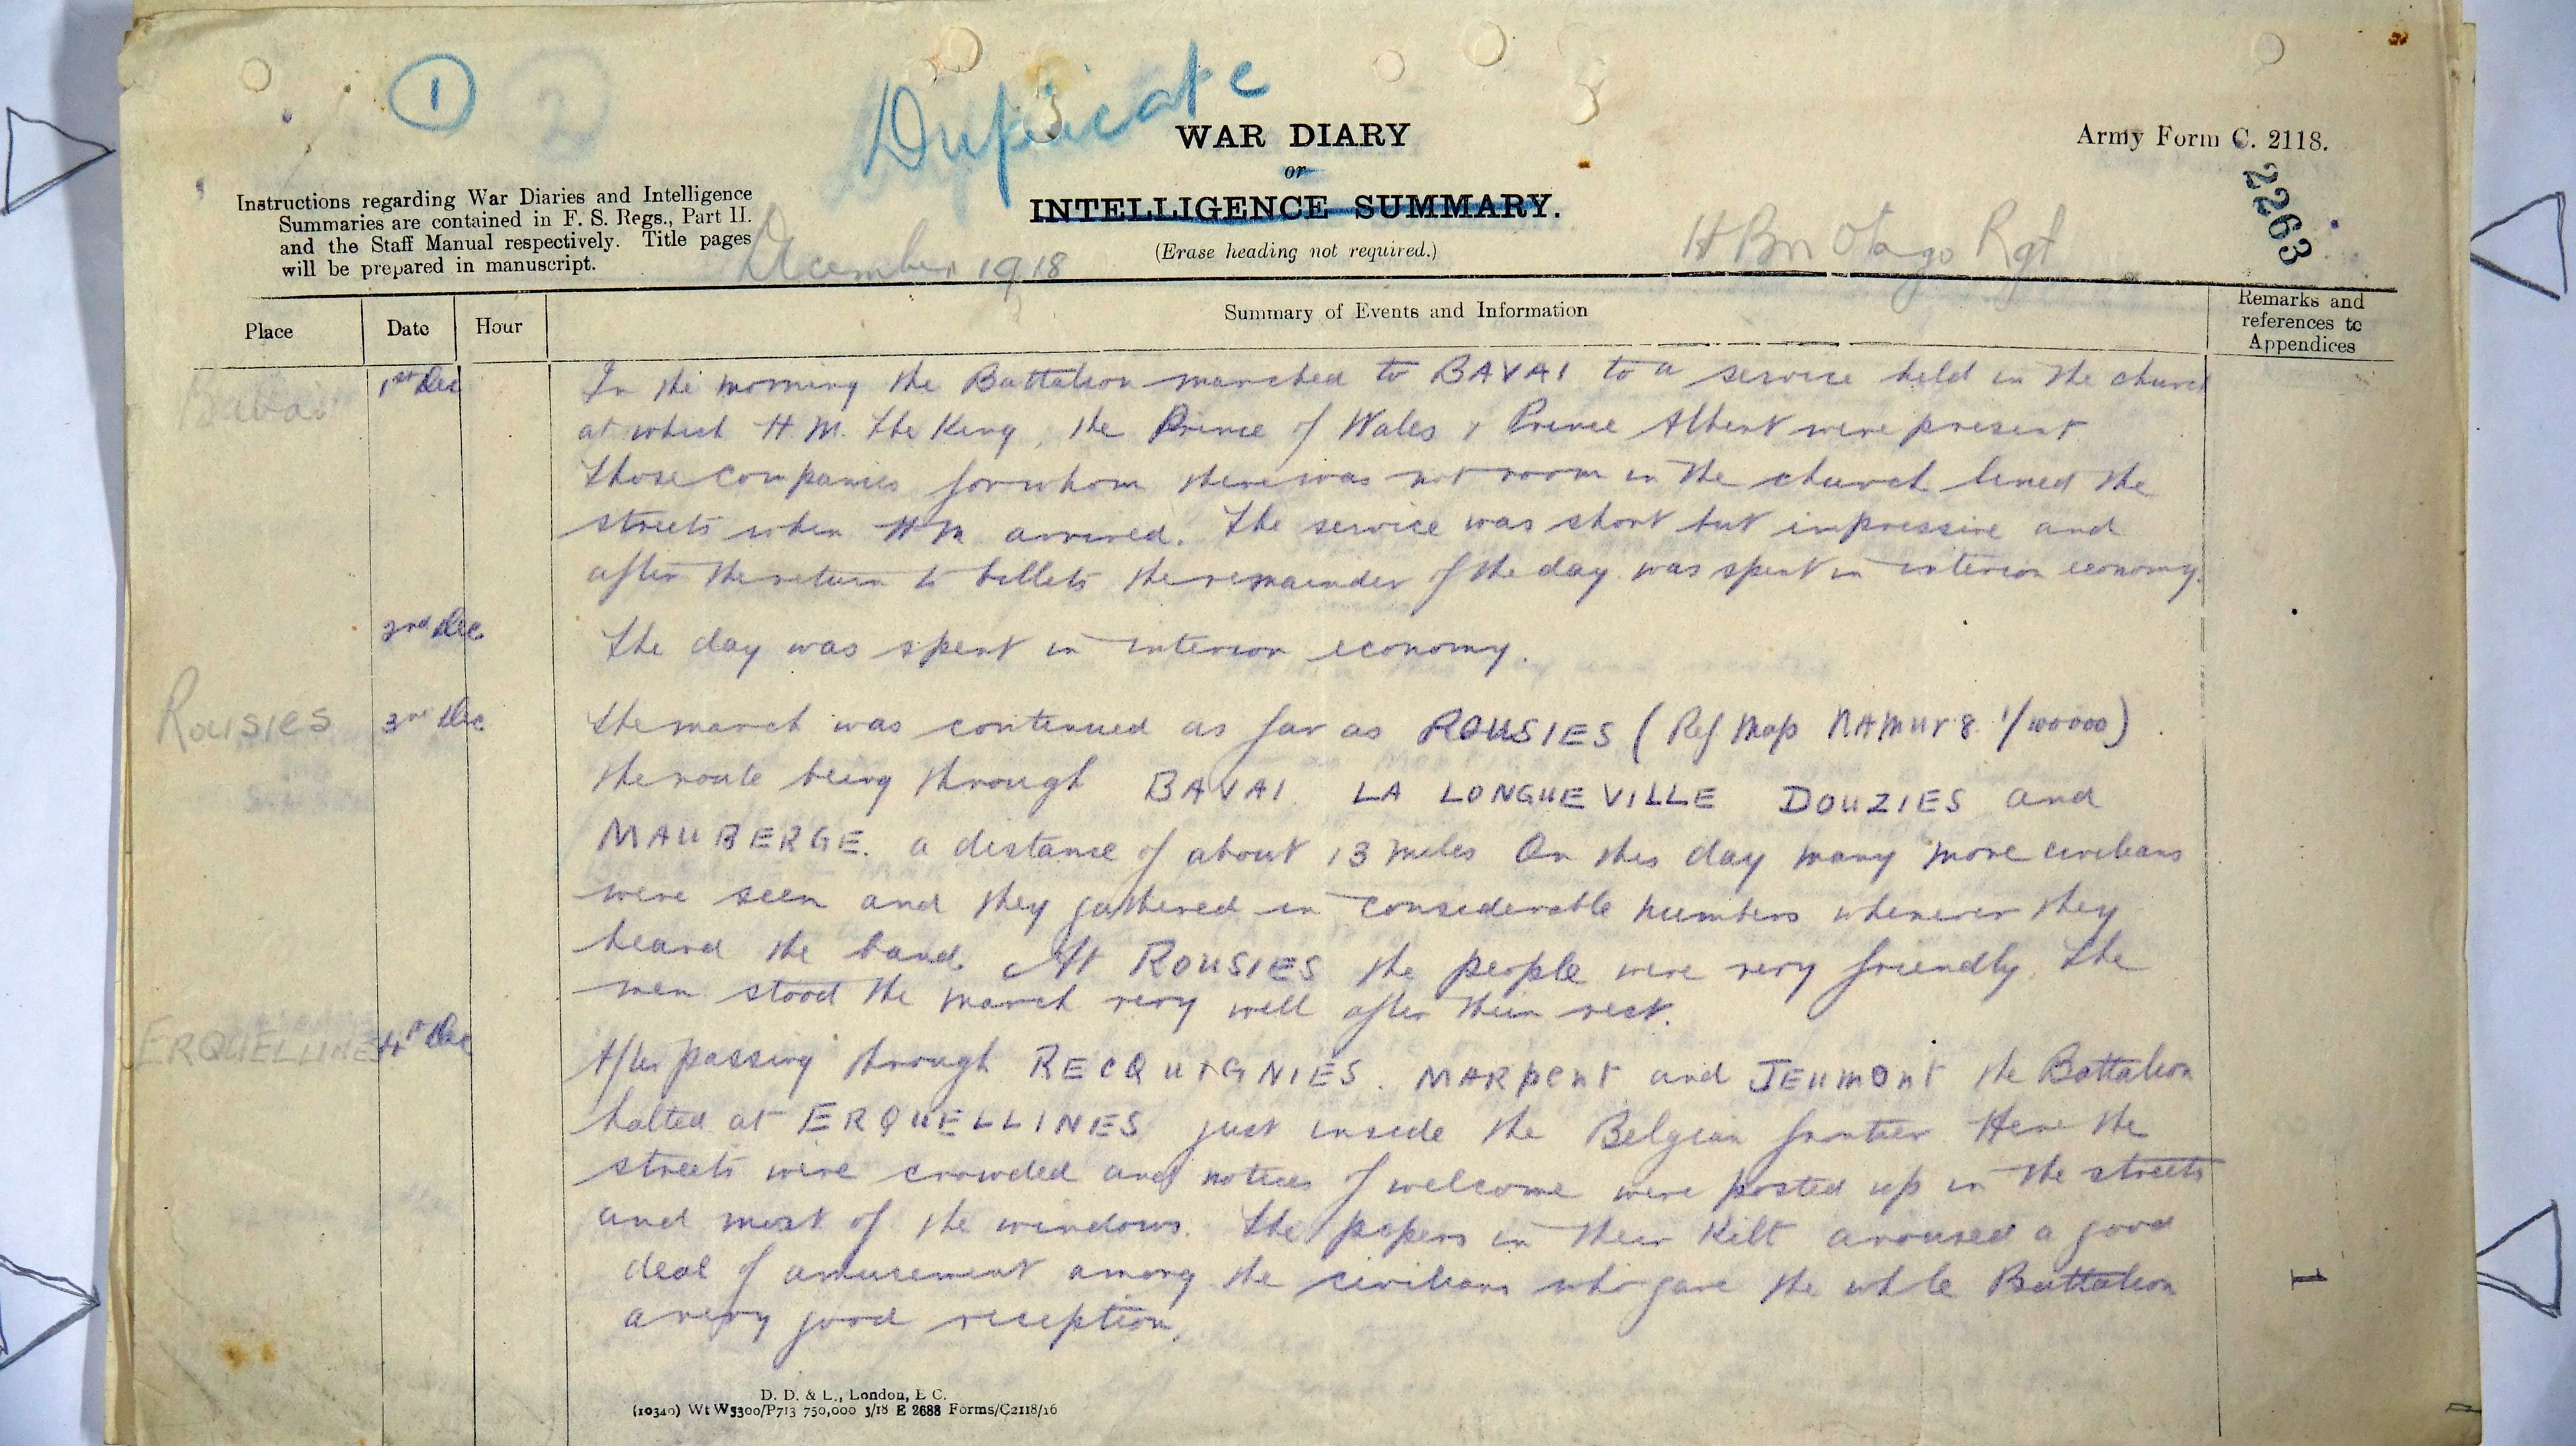 1
2
Duplicate
WAR DIARY
or
INTELLIGENCE SUMMARY.
(Erase heading not required.)
Army Form C. 2118.
2263
Instructions regarding War Diaries and Intelligence
Summaries are contained in F. S. Regs., Part II.
and the Staff Manual respectively. Title pages
will be prepared in manuscript.
December 1918
Bn Otago Rgt
Place
Date
Hour
Summary of Events and Information
Remarks and
references to
Appendices
Bavai
1st Dec
In the morning the Battalion marched to BAVAI to a service held in the church
at which H.M. The King, the Prince of Wales & Prince Albert were present
Those companies for whom there was not room in the church lined the
streets when HM arrived. The service was short but impressive and
after the return to billets the remainder of the day was spent in interior economy.
2nd Dec
The day was spent in interior economy.
Rousies
3rd Dec
The march was continued as far as ROUSIES (Ref Map NAMUR 8. 1/100000).
the route being through BAVAI LA LONGUEVILLE DOUZIES and
MAUBERGE. a distance of about 13 miles On this day many more civilians
were seen and they gathered in considerable numbers whenever they
heard the band. At ROUSIES the people were very friendly. The
men stood the march very well after their rest.
ERQUELLINES
4th Dec
After passing through RECQUIGNIES. MARPENT and JEUMONT the Battalion
halted at ERQUELLINES just inside the Belgian frontier Here the
streets were crowded and notices of welcome were posted up in the streets
and most of the windows. The pipers in their kilt aroused a good
deal of amusement among the civilians who gave the whole Battalion
a very good reception.
1
D. D. & L., London, E C.
(10340) Wt W5300/P713 750,000 3/18 E 2688 Forms/C2118/16